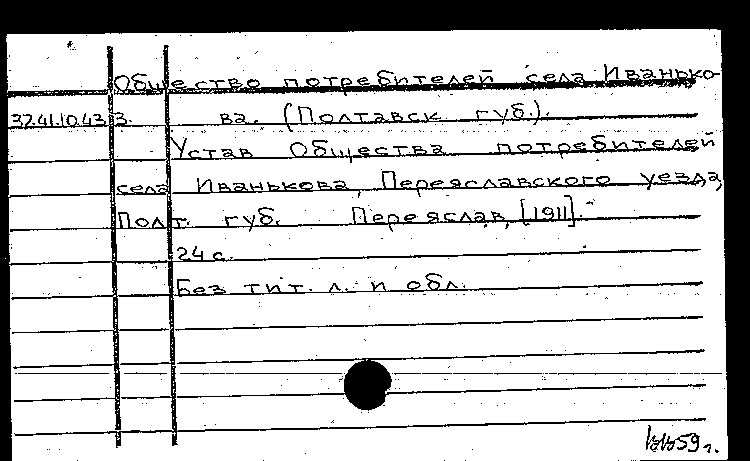 Общество потребителей села Иванько-
37.41.10.43 3. ва. (Полтавск губ.).
Устав Общества потребителей
села Иванькова, Переяславского уезда,
Полт. губ. Переяслав, [1911].
24 с.
Без тит. л. и обл.
59 г.